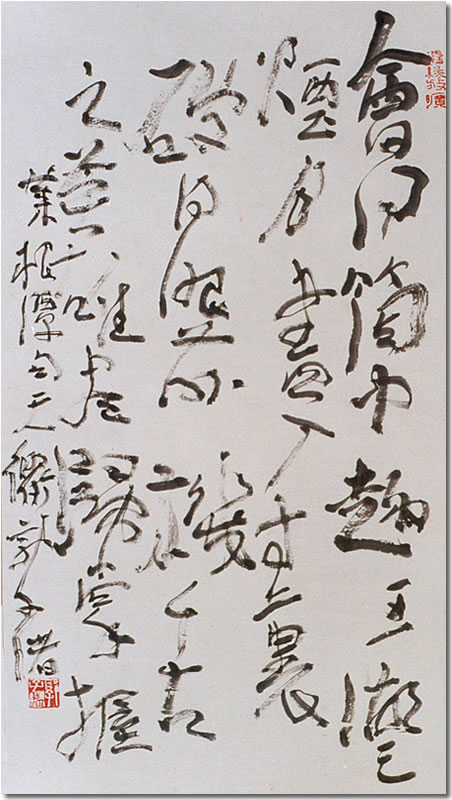 會得箇中趣五湖之
煙月盡入寸裏
破得眼前機千古
之英雄盡歸掌握
菜根譚句